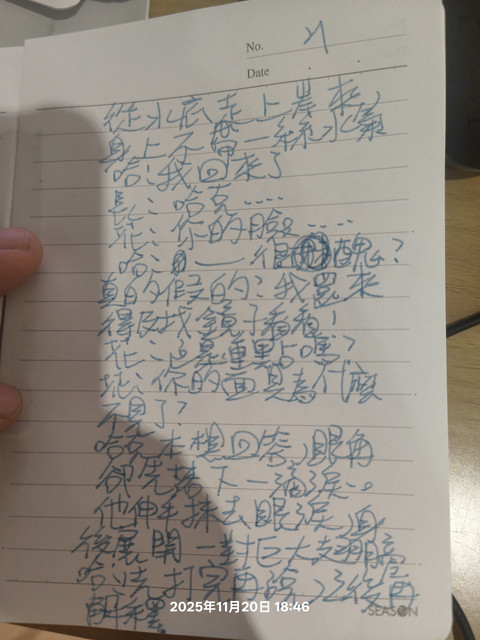 No. 21
Date
從水底走上岸來,
身上不帶一絲水氣
哈:我回來了
長:哈克....
花:你的臉....
哈:一很醜?
真的假的?我還來
得及找鏡子看看!
花:這是重點嗎?
花:你的面具為什麼
不見了?
哈克本想回答,眼角
卻先落下一滴淚。
他伸手抹去眼淚,身
後展開一對巨大翅膀
哈:先打完再說,之後再
解釋
SEASON
2025年11月20日 18:46